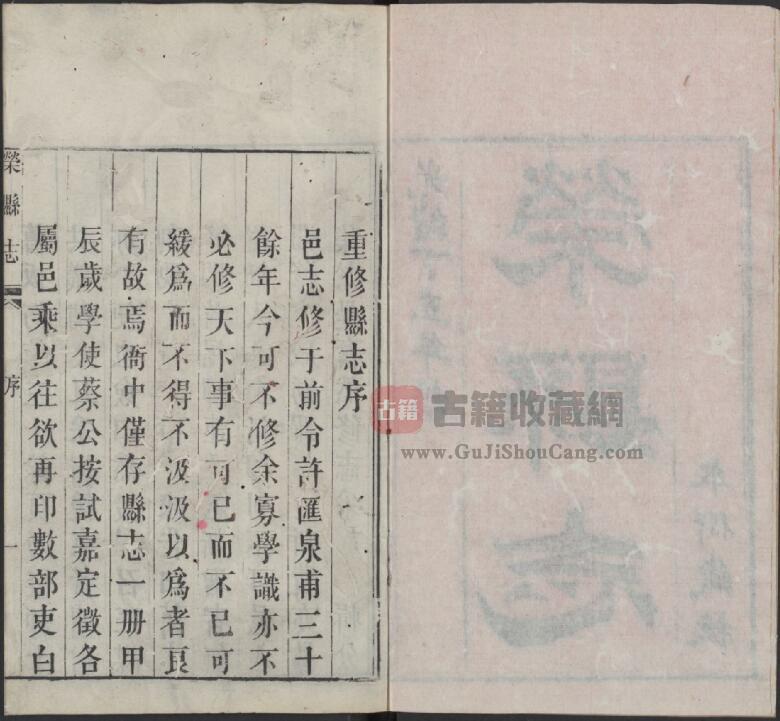 本衙藏板
榮縣志
古籍
古籍收藏網
www.GuJiShouCang.com
重修縣志序
邑志修于前令許匯泉甫三十
餘年今可不修余寡學識亦不
必修天下事有可已而不已可
緩爲而不得不汲汲以爲者良
有故焉衙中僅存縣志一册甲
辰歲學使蔡公按試嘉定徵各
屬邑乘以往欲再印數部吏白
榮縣志 序 一